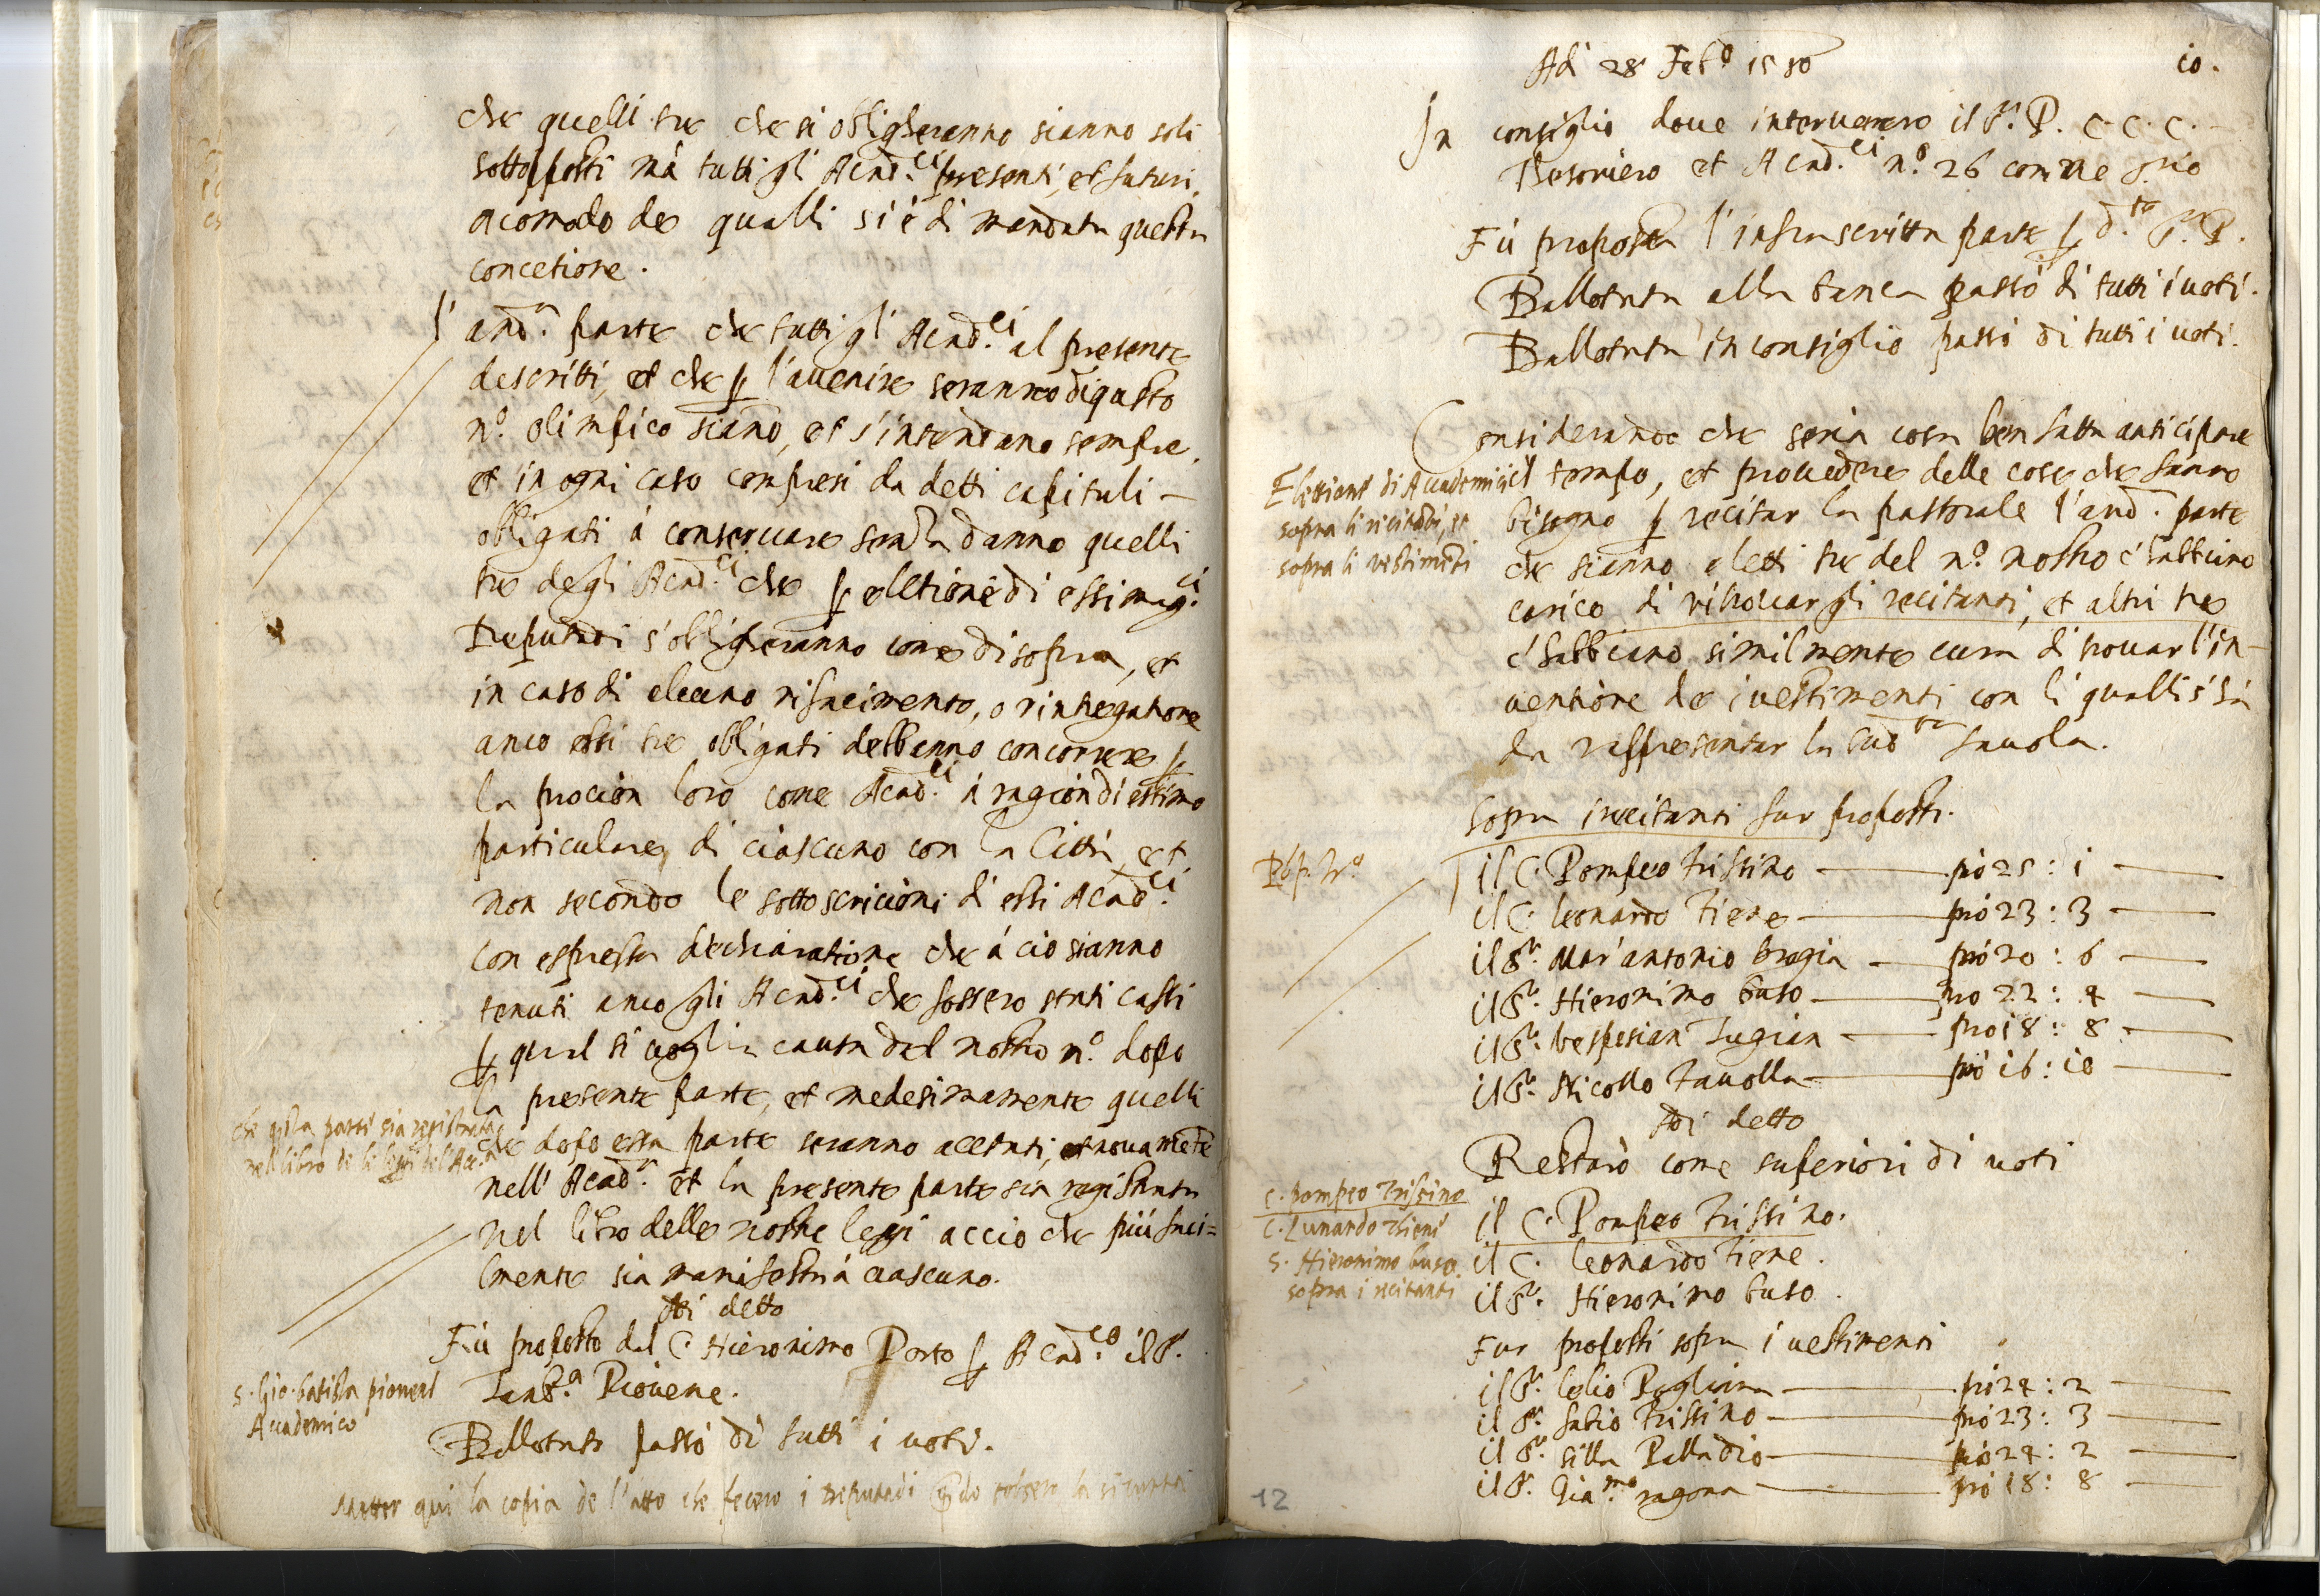 che quelli tre che si obligheranno sianno soli
sottopposti mà tutti gli Acad.ci presenti, et futuri,
acomodo de qualli si è di mandata questa
concetione.
l'and.a parte che tutti gl' Acad.ci al presente
descritti, et che p l'avenire seranno di questo
n.o olimpico siano, et s'intendano sempre,
et in ogni caso compresi da detti capituli –
obligati à conservare senza danno quelli
tre degli Acad.ci che p elletione di essi mag.ci
Deputadi s'obligheranno come di sopra, et
in caso di alcuno rifacimento, o rintegatione
anco essi tre obligati debbanno concorrere p
la procion loro come Acad.ci à ragion di estimo
particulare, di ciascuno con la Città, et
non secondo le sottoscricioni di essi Acad.ci
con espressa dechiarattione che à cio sianno
tenuti anco gli Acad.ci che fossero stati cassi
p qual si voglia causa dal nostro n.o dopo
la presente parte, et medesimamente quelli
che dopo essa parte seranno acetati, et novamete
nell' Acad.a et la presente parte sia registrata
nel libro delle nostre leggi accio che più faci=
lmente sia manifesta à ciascuno.
che qsta parte sia registrata
nell libro de le leggi del'Acc.a
Adi detto
Fù proposto dal C. Hieronimo Porto p Acad.co il S.r
Zanb.a Piovene.
S. Gio. batista piovene
Academico
Ballotato passò di tutti i voti.
Metter qui la copia de l'atto che fecero i deputadi qdo tolsero la sicurtà
Adi 28 Feb.o 1580
10.
In consiglio dove intervenero il S.r P. C. C. C.
Tesoriero et Acad.ci n.o 26 comme
Fù proposta l'infrascritta parte p d.to S.r P.
Ballotata alla banca passò di tutti i voti.
Ballotata in consiglio passò di tutti i voti.
Considerando che seria cosa ben fatta anticipare
il tempo, et provedere delle cose che fanno
bisogno p recitar la pastorale l'and. parte
che sianno eletti tre del n.o nostro c'habbiano
carico di ritrovar gli recitanti, et altri tre
c'habbiano similmente cura di trovar l'in-
ventione de i vestimenti con li qualli s'hà
da rappresentar la sud.ta favola.
Elettione di Academici
sopra li recitanti, et
sopra li vestimenti
Sopra i recitanti fur proposti.
il C. Pompeo Trissino — pro 25 : 1 —
il C. Leonardo Tiene — pro 23 : 3 —
il S.r Mar'antonio brogia — pro 20 : 6 —
il S.r Hieronimo buso — pro 22 : 4 —
il S.r Vespesian Zugian — pro 18 : 8 —
il S.r Nicollo Tavolla — pro 16 : 10 —
Adi detto
Restarò come superiori di voti
il C. Pompeo Trissino.
il C. Leonardo Tiene.
il S.r Hieronimo buso.
C. pompeo Trissino
C. Lunardo Thiene
S. Hieronimo buso
sopra i recitanti
Fur proposti sopra i vestimenti
il S.r Lelio Pogliana — pro 24 : 2 —
il S.r fabio Trissino — pro 23 : 3 —
il S.r silla Palladio — pro 24 : 2 —
il S.r Gia.mo ragona — pro 18 : 8 —
12